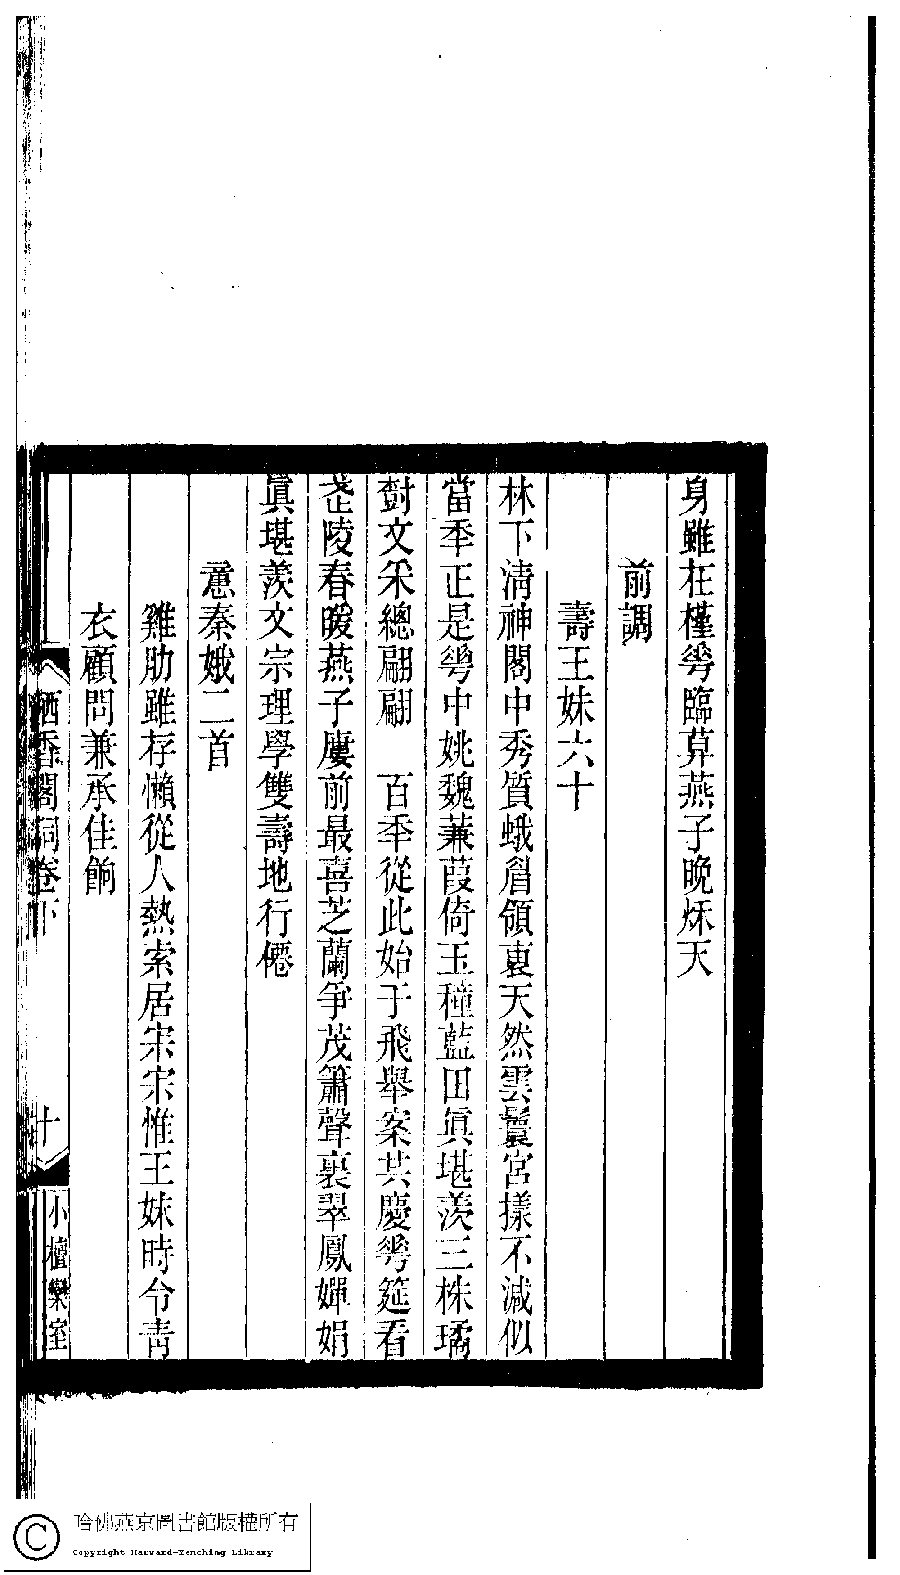 身雖在槿㠭臨草燕子晚秌天
前調
壽王妹六十
林下淸神閣中秀質蛾眉領裏天然雲鬟宮樣不減似
當秊正是㠭中姚魏蒹葭倚玉種藍田眞堪羨三株璚
尌文采總翩翩　百秊從此始于飛舉案共慶㠭筵看
芷陵春暖燕子廔前最喜芝蘭爭茂簫聲裏翠鳳嬋娟
眞堪羨文宗理學雙壽地行僊
憶秦娥二首
雞肋雖存懶從人熱索居宋宋惟王妹時令靑
衣顧問兼承佳餉
栖香閣詞卷下
十
小檀欒室
哈佛燕京圖書館版權所有
Copyright Harvard-Yenching Library